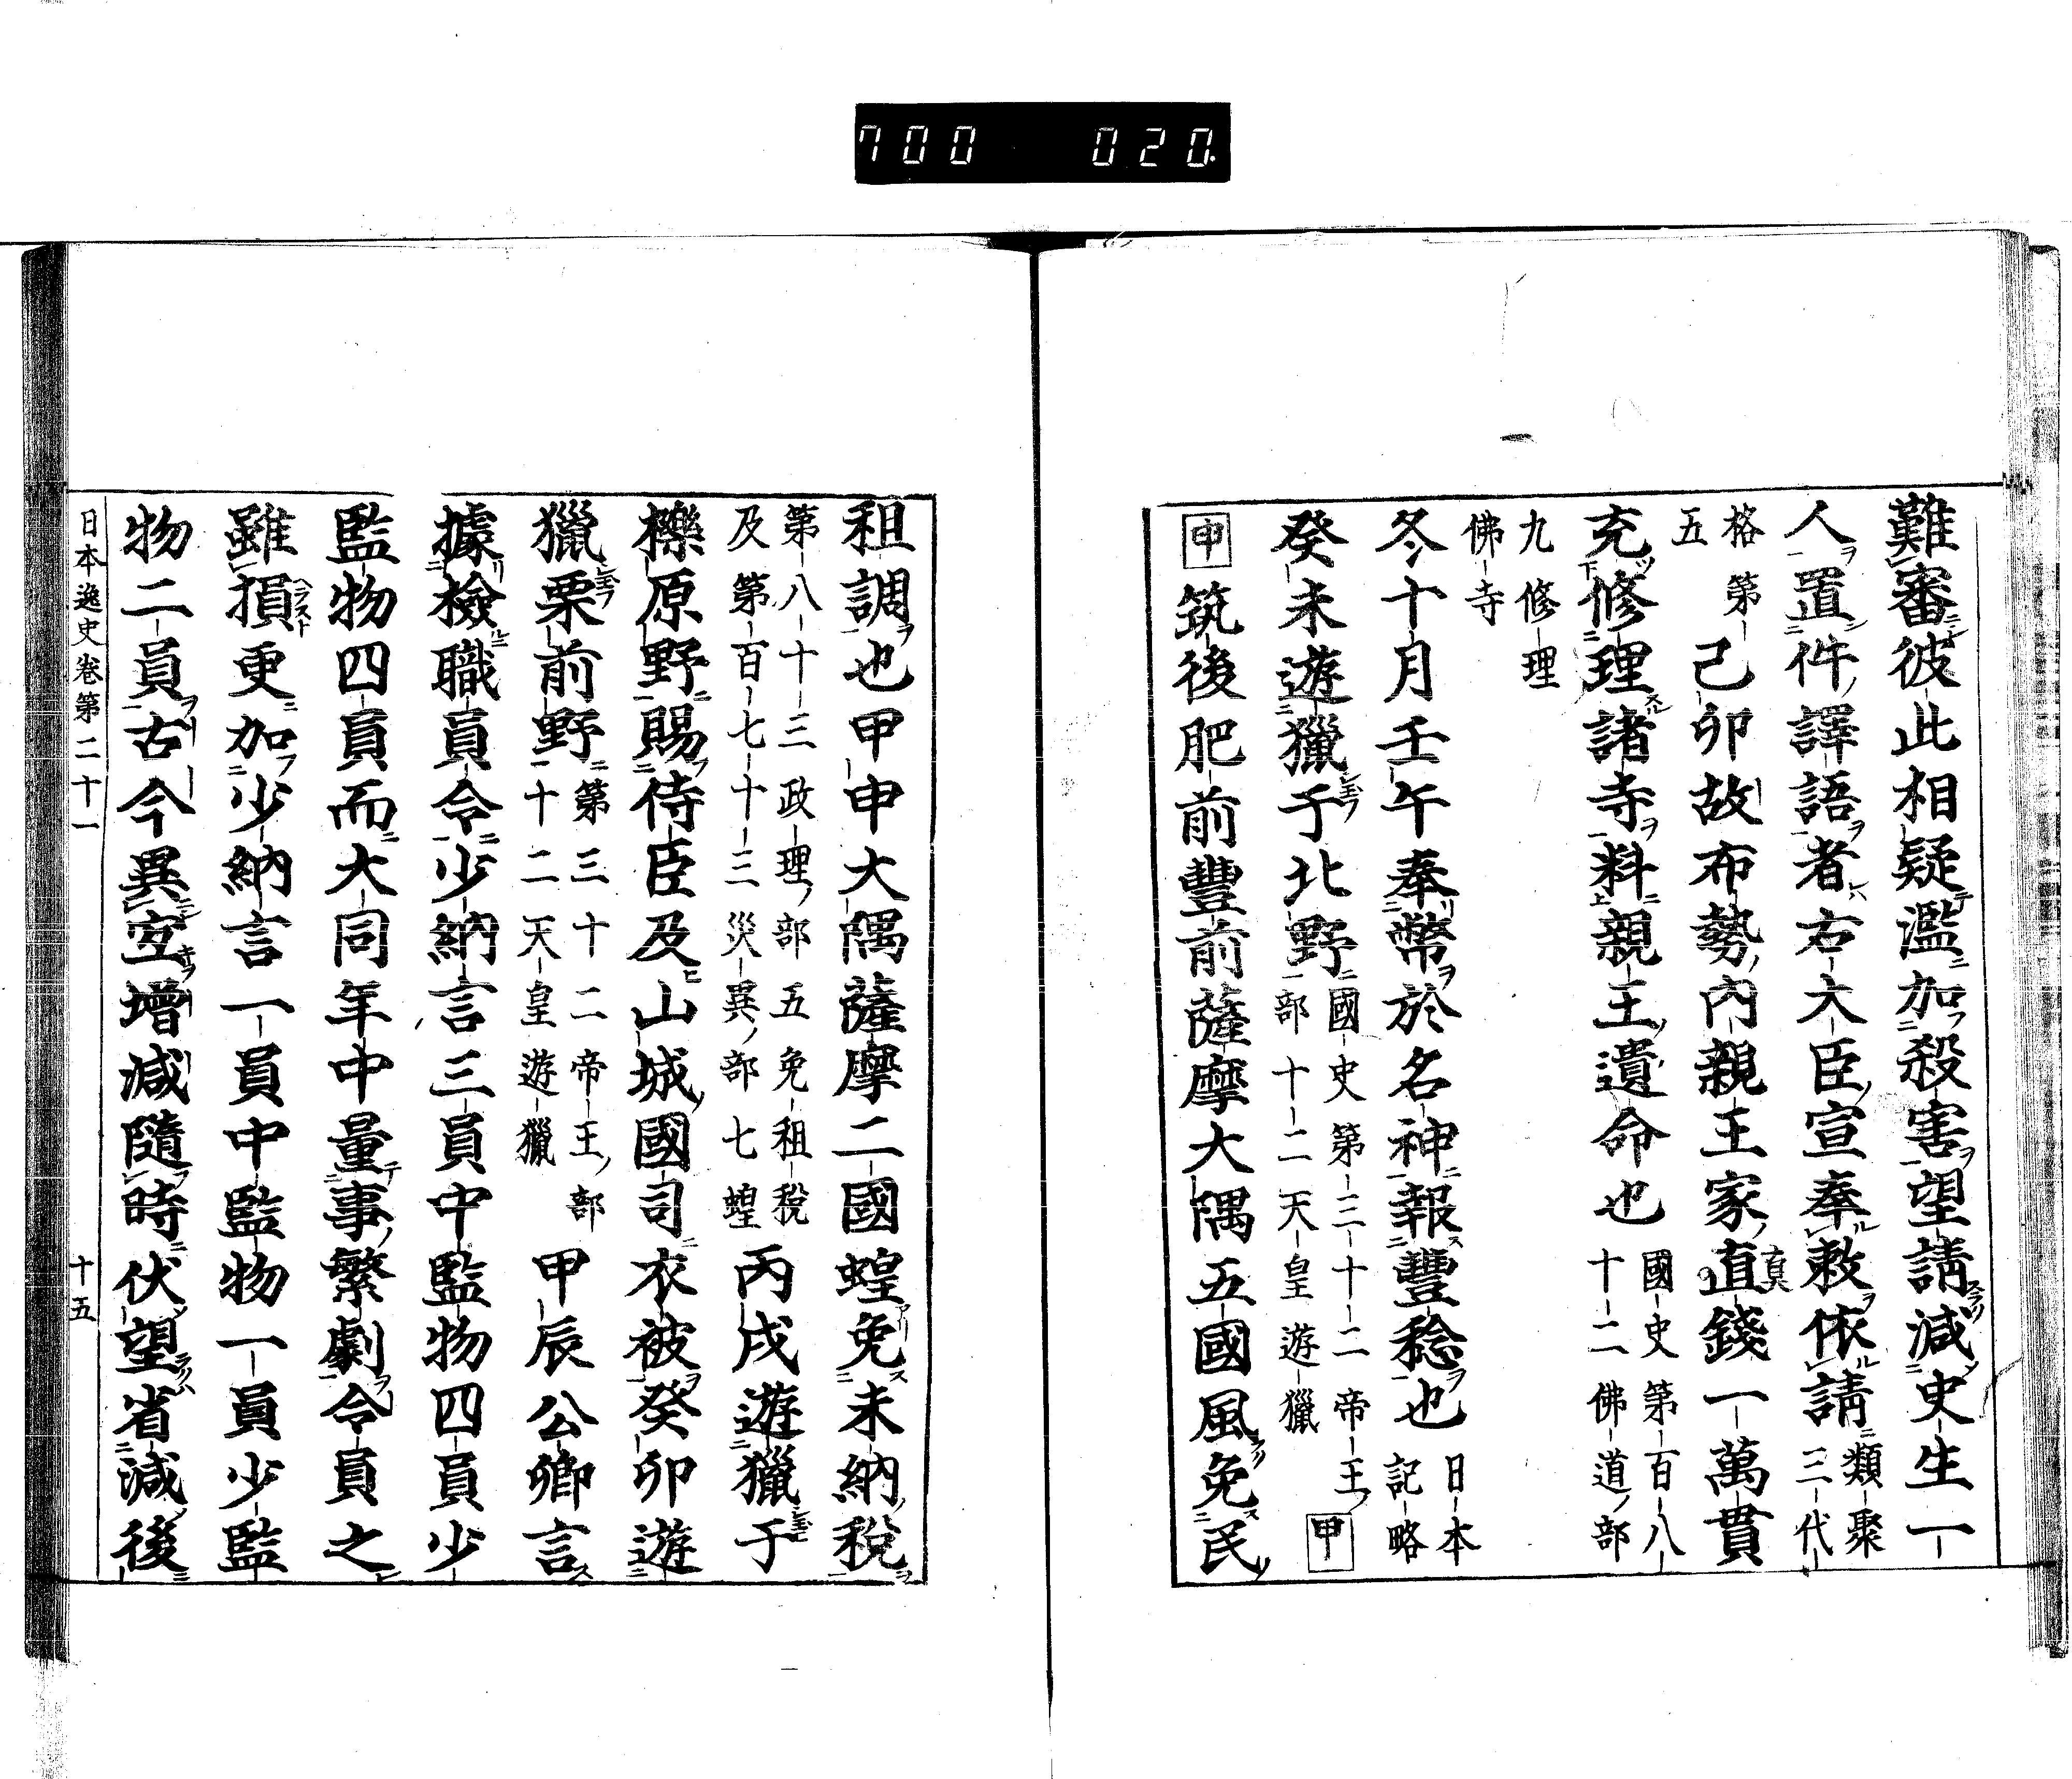 700 020.
難審彼此相疑濫加殺害望請減史生一
人置件譯語者右大臣宣奉敕依請類聚三代
格第五 己卯故布勢內親王家直錢一萬貫
充修理諸寺料親王遺命也國史第百八十二佛道部
九修理佛寺
冬十月壬午奉幣於名神報豐稔也日本記略
癸未遊獵于北野國史第三十二帝王部十二天皇遊獵 甲
申筑後肥前豐前薩摩大隅五國風免民
租調也甲申大隅薩摩二國蝗免未納稅
第八十三政理部五免租稅及第百七十三災異部七蝗 丙戌遊獵于
櫟原野賜侍臣及山城國司衣被癸卯遊
獵栗前野第三十二帝王部十二天皇遊獵 甲辰公卿言
據檢職員令少納言三員中監物四員少
監物四員而大同年中量事繁劇令員之
雖損更加少納言一員中監物一員少監
物二員古今異宜增減隨時伏望省減後
日本逸史卷第二十一 十五